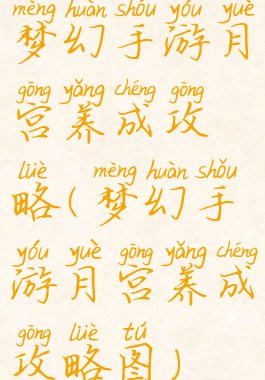 mèng huàn shǒu yóu yuè
梦幻手游月
gōng yǎng chéng gōng
宫养成攻
lüè mèng huàn shǒu
略(梦幻手
yóu yuè gōng yǎng chéng
游月宫养成
gōng lüè tú
攻略图)